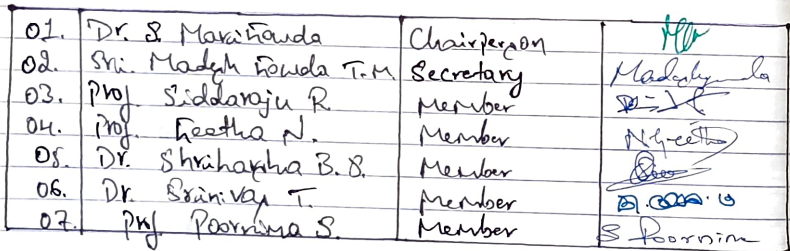 01. Dr. S. Marigowda Chairperson
02. Sri. Madesh Gowda T.M. Secretary Madeshgowda
03. Prof. Siddaraju R. Member
04. Prof. Geetha N. Member N Geetha
05. Dr. Shriharsha B.S. Member
06. Dr. Srinivas T. Member
07. Prof. Poornima S. Member S Poornima